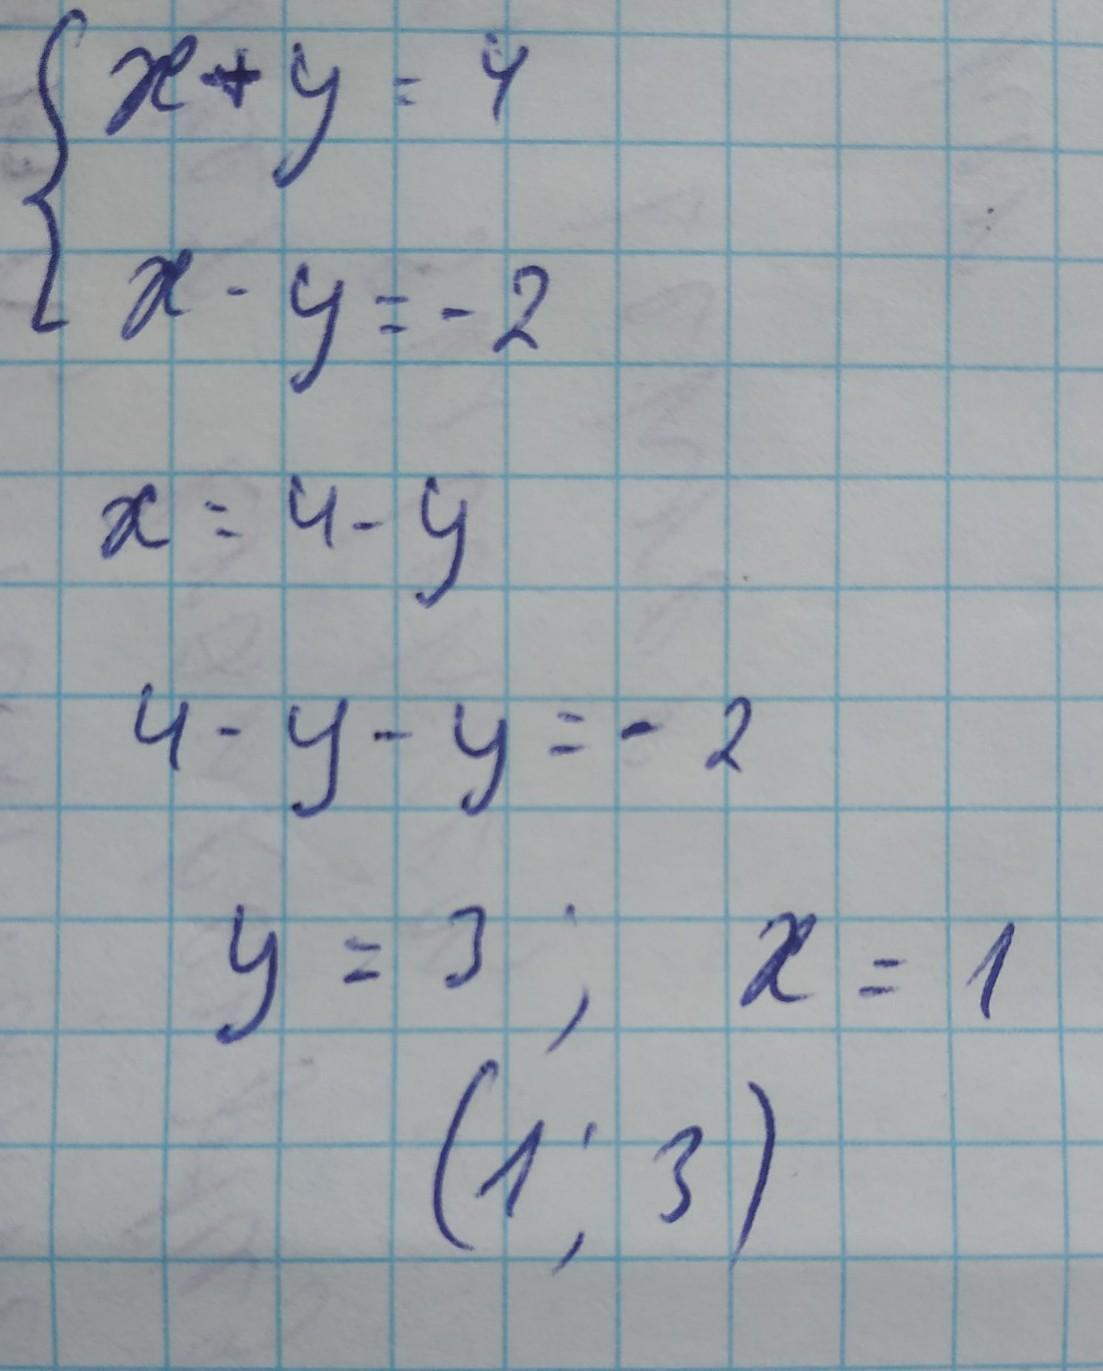 x + y = 4
x - y = - 2
x = 4 - y
4 - y - y = - 2
y = 3 ; x = 1
(1 ; 3)